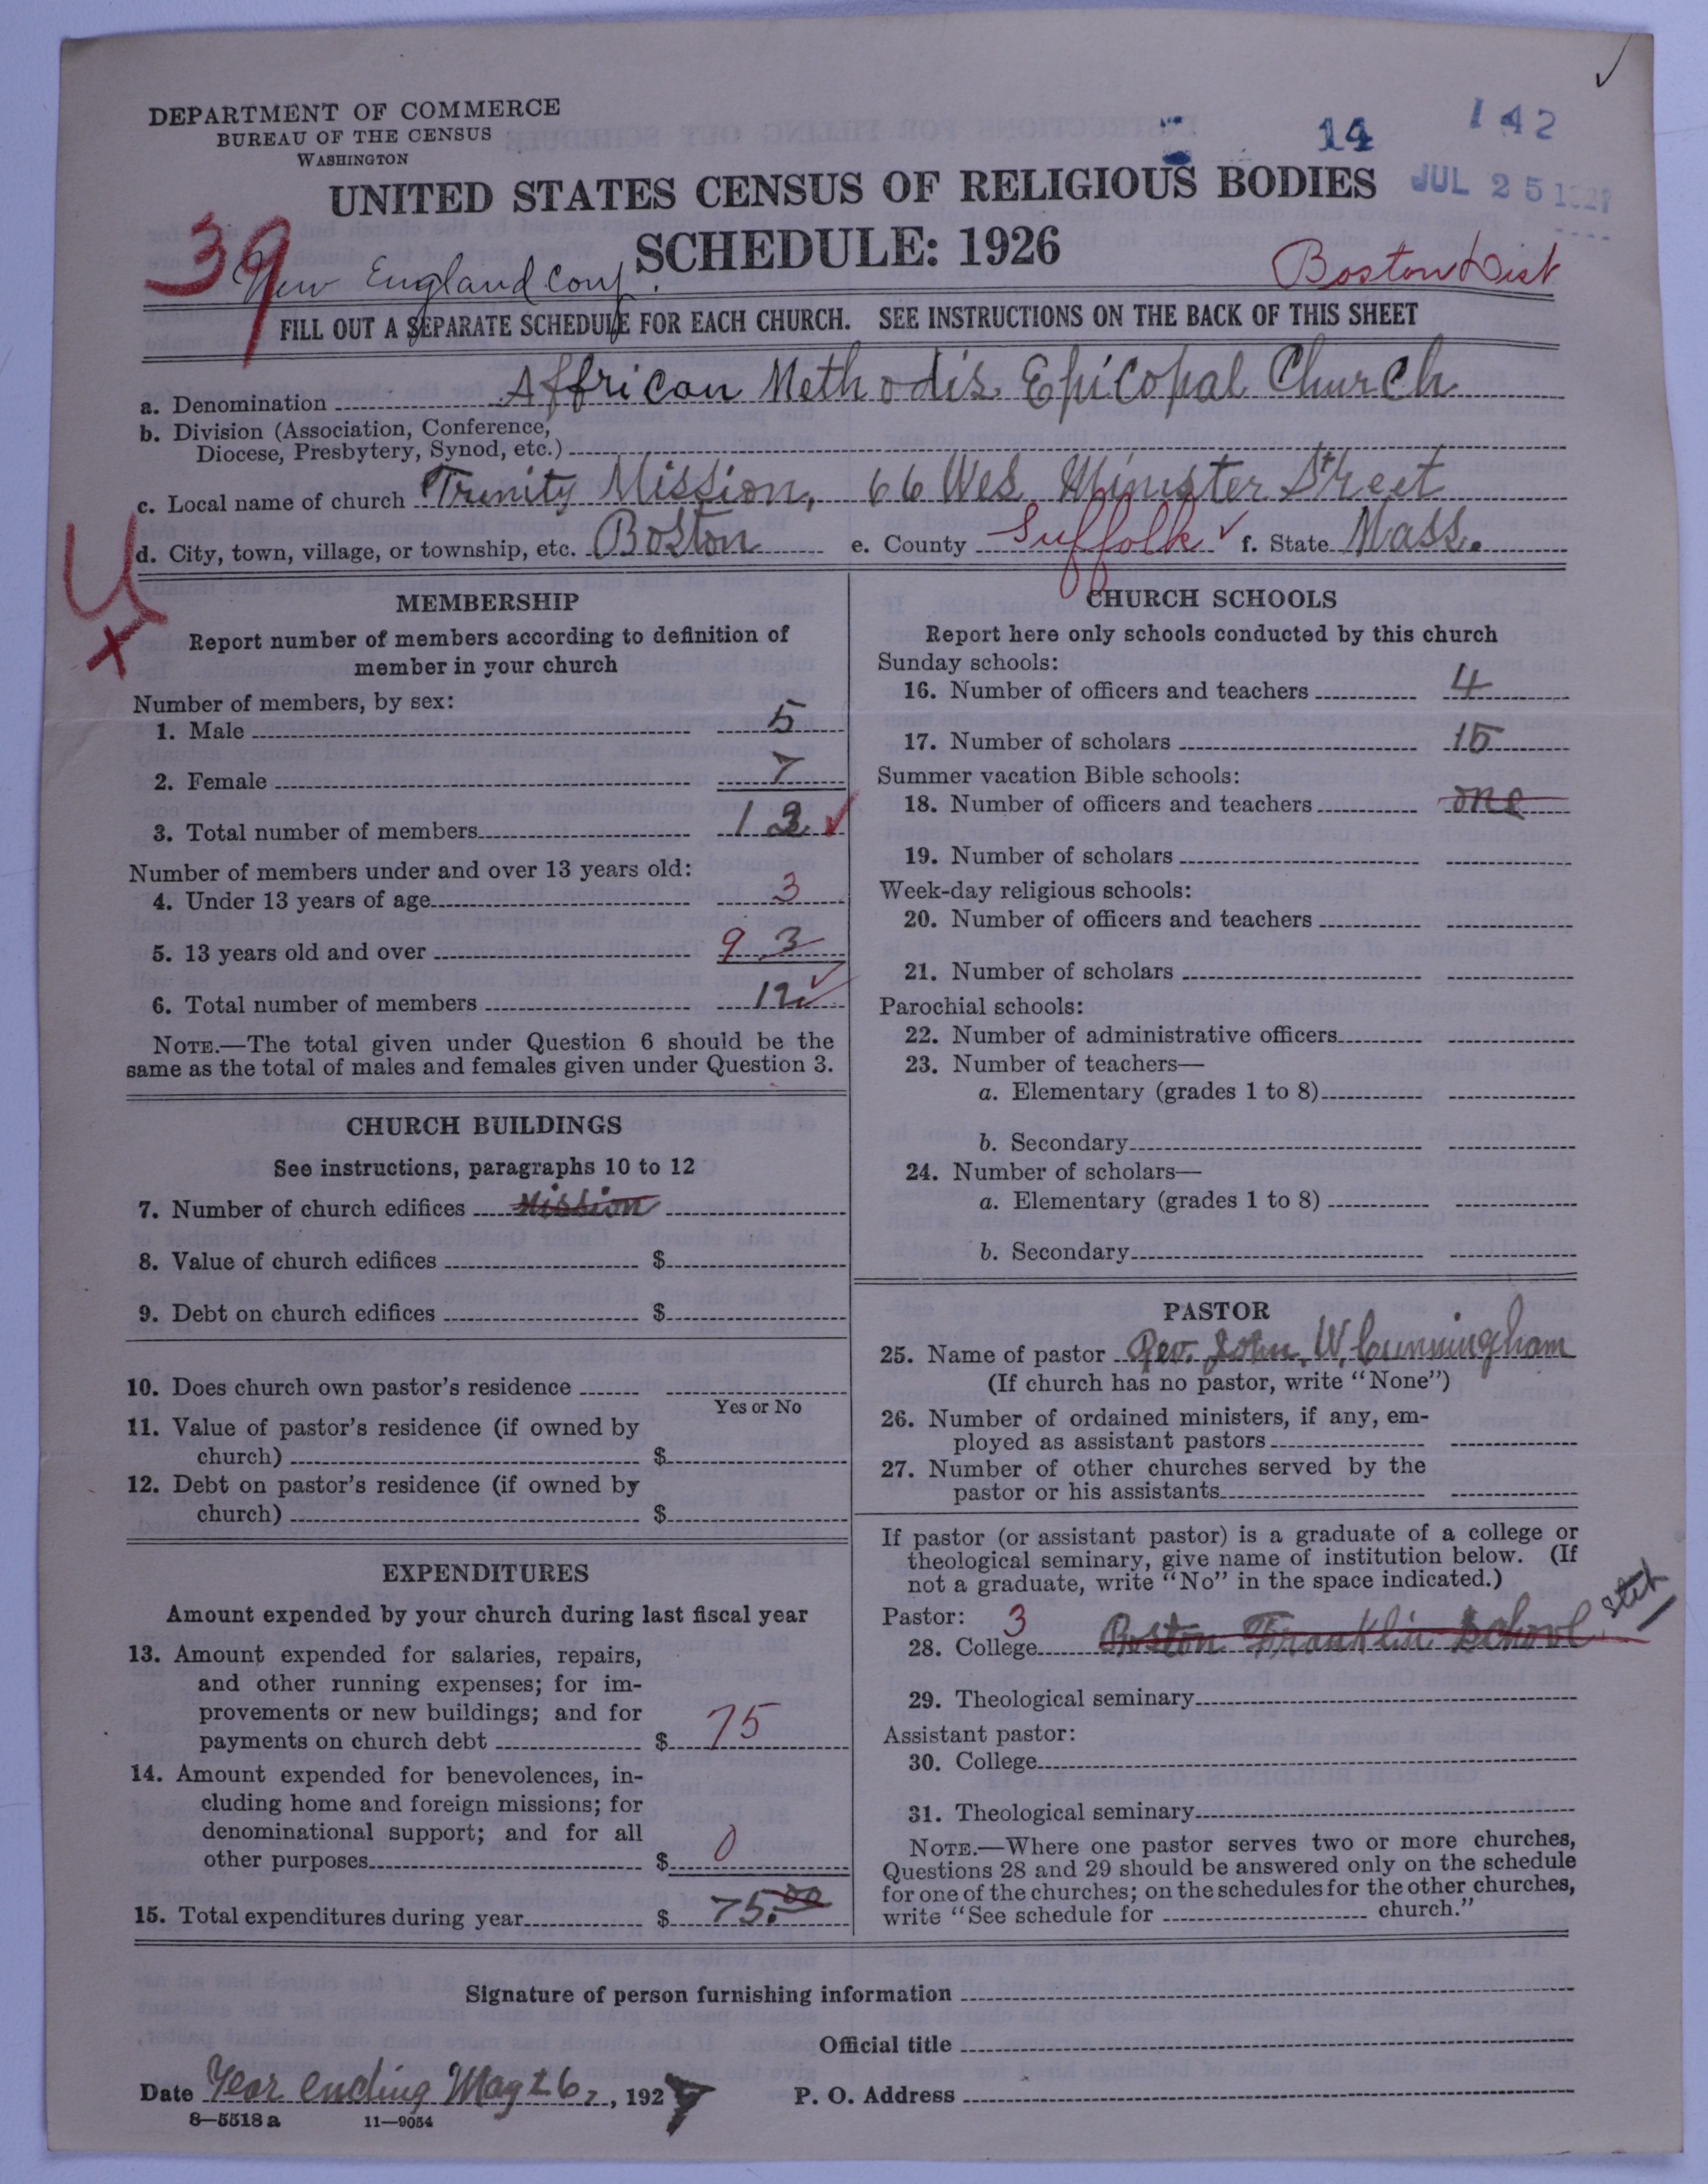 DEPARTMENT OF COMMERCE
BUREAU OF THE CENSUS
WASHINGTON
14
142
JUL 25
UNITED STATES CENSUS OF RELIGIOUS BODIES
SCHEDULE: 1926
39
New England Conf.
Boston Dist
FILL OUT A SEPARATE SCHEDULE FOR EACH CHURCH. SEE INSTRUCTIONS ON THE BACK OF THIS SHEET
a. Denomination Affrican Methodis Epicopal Church
b. Division (Association, Conference,
Diocese, Presbytery, Synod, etc.)
c. Local name of church Trinity Mission, 66 Wes Minster Street
d. City, town, village, or township, etc. Boston e. County Suffolk f. State Mass.
MEMBERSHIP
Report number of members according to definition of
member in your church
Number of members, by sex:
1. Male 5
2. Female 7
3. Total number of members
Number of members under and over 13 years old:
4. Under 13 years of age 3
5. 13 years old and over 9 3
6. Total number of members 12
NOTE.—The total given under Question 6 should be the
same as the total of males and females given under Question 3.
CHURCH BUILDINGS
See instructions, paragraphs 10 to 12
7. Number of church edifices Mission
8. Value of church edifices $
9. Debt on church edifices $
10. Does church own pastor's residence
Yes or No
11. Value of pastor's residence (if owned by
church) $
12. Debt on pastor's residence (if owned by
church) $
EXPENDITURES
Amount expended by your church during last fiscal year
13. Amount expended for salaries, repairs,
and other running expenses; for im-
provements or new buildings; and for
payments on church debt $ 75
14. Amount expended for benevolences, in-
cluding home and foreign missions; for
denominational support; and for all
other purposes $ 0
15. Total expenditures during year $ 75.00
CHURCH SCHOOLS
Report here only schools conducted by this church
Sunday schools:
16. Number of officers and teachers 4
17. Number of scholars 15
Summer vacation Bible schools:
18. Number of officers and teachers one
19. Number of scholars
Week-day religious schools:
20. Number of officers and teachers
21. Number of scholars
Parochial schools:
22. Number of administrative officers
23. Number of teachers—
a. Elementary (grades 1 to 8)
b. Secondary
24. Number of scholars—
a. Elementary (grades 1 to 8)
b. Secondary
PASTOR
25. Name of pastor Rev. John. W. Cunningham
(If church has no pastor, write "None")
26. Number of ordained ministers, if any, em-
ployed as assistant pastors
27. Number of other churches served by the
pastor or his assistants
If pastor (or assistant pastor) is a graduate of a college or
theological seminary, give name of institution below. (If
not a graduate, write "No" in the space indicated.)
Pastor: 3
28. College Boston Franklin School stet
29. Theological seminary
Assistant pastor:
30. College
31. Theological seminary
NOTE.—Where one pastor serves two or more churches,
Questions 28 and 29 should be answered only on the schedule
for one of the churches; on the schedules for the other churches,
write "See schedule for church."
Signature of person furnishing information
Official title
Date Year ending May 26, 1927 P. O. Address
8—5518 a 11—9054